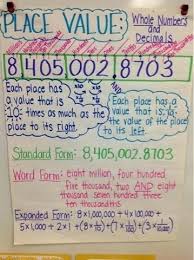 PLACE VALUE:
Whole Numbers
and
Decimals
8,405,002.8703
Each place has
a value that is
10 times as much as the
place to its right.
Each place has a
value that is
of the value
of the place
to its left.
Standard Form: 8,405,002.8703
Word Form: eight million, four hundred
five thousand, two AND eight
thousand seven hundred three
ten thousandths
Expanded Form: 8×1,000,000 + 4×100,000 +
5×1,000 + 2×1 + (8× 1/10) + (7× 1/100) + (3× 1/10,000)